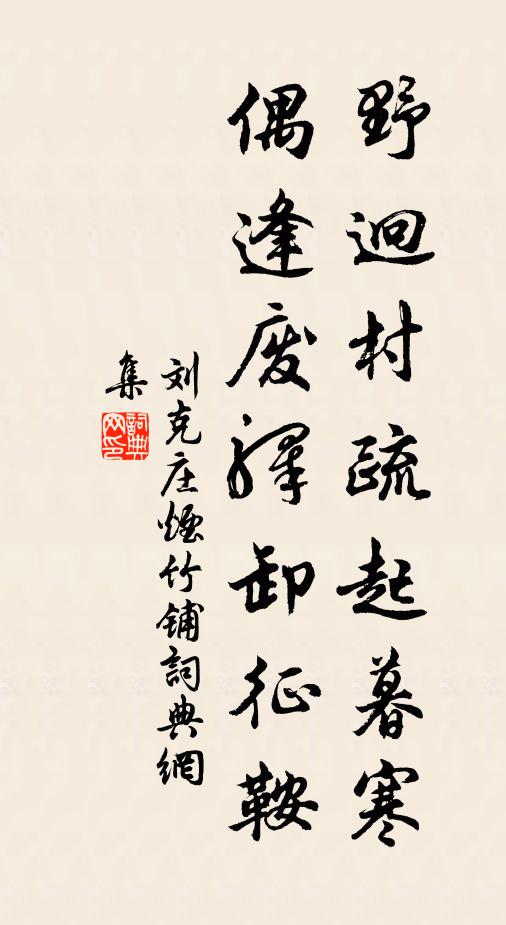 野迥村疏起暮寒
偶逢废驿卸征鞍
刘克庄煙竹铺詞典網
集
詞典
网印